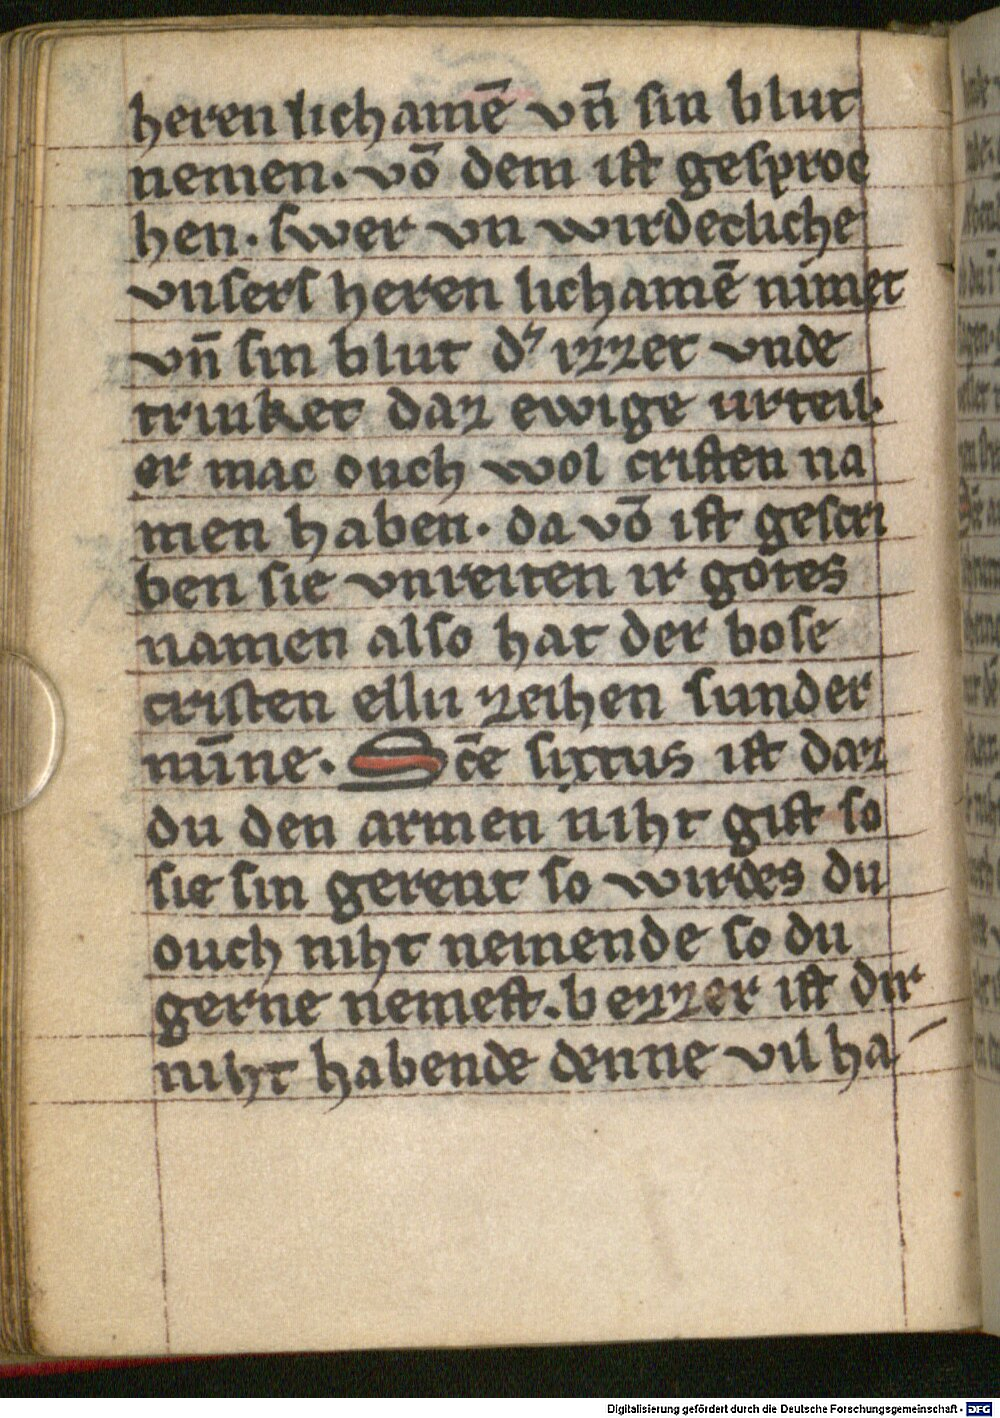 heren lichamē vn̄ sin blut
nemen. vō dem ist gesproc
hen. swer vn wirdecliche
vnsers heren lichamē nimet
vn̄ sin blut d᾽ izzet vnde
trinket daz ewige urteil.
er mac ouch wol cristen na
men haben. da vō ist gescri
ben sie vnreiten ir gotes
namen also hat der bose
cristen ellu zeihen sunder
mīne. Sc̄e sixtus ist daz
du den armen niht gist so
sie sin gerent so wirdes du
ouch niht nemende so du
gerne nemest. bezzer ist dir
niht habende denne vil ha
Digitalisierung gefördert durch die Deutsche Forschungsgemeinschaft - DFG